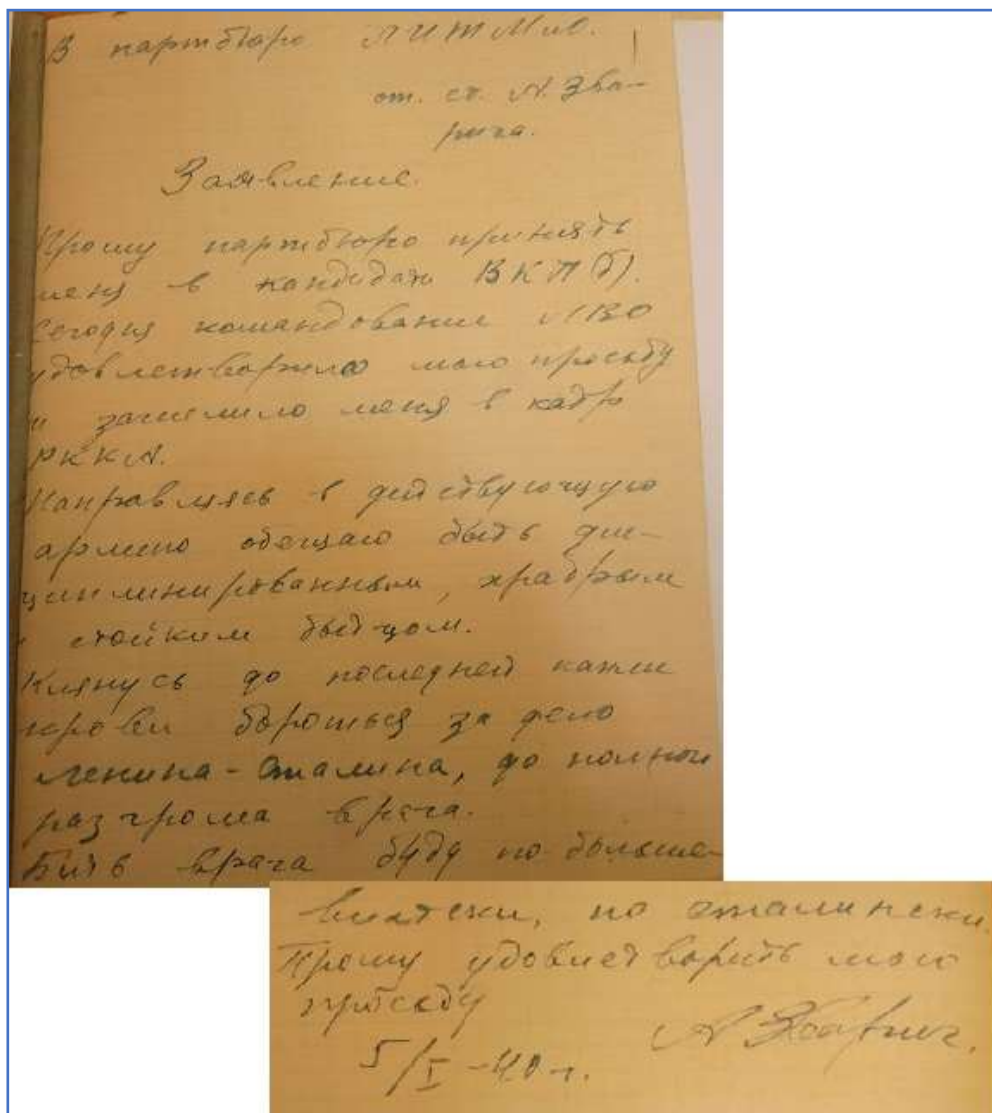 В партбюро ЛИТМиО.
от. ст. А. Зва-
рича.
Заявление.
Прошу партбюро принять
меня в кандидаты ВКП(б).
Сегодня командование ЛВО
удовлетворило мою просьбу
и зачислило меня в кадры
РККА.
Направляясь в действующую
армию обещаю быть дис-
циплинированным, храбрым
и стойким бойцом.
Клянусь до последней капли
крови бороться за дело
Ленина-Сталина, до полного
разгрома врага.
Бить врага буду по больше-
вистски, по сталински.
Прошу удовлетворить мою
просьбу
А Зварич.
5/I-40 г.